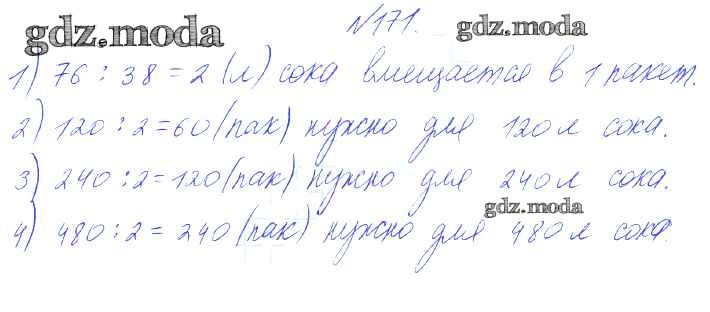 №171.
gdz.moda gdz.moda
1) 76 : 38 = 2 (л) сока вмещается в 1 пакет.
2) 120 : 2 = 60 (пак) нужно для 120 л сока.
3) 240 : 2 = 120 (пак) нужно для 240 л сока.
gdz.moda
4) 480 : 2 = 240 (пак) нужно для 480 л сока.